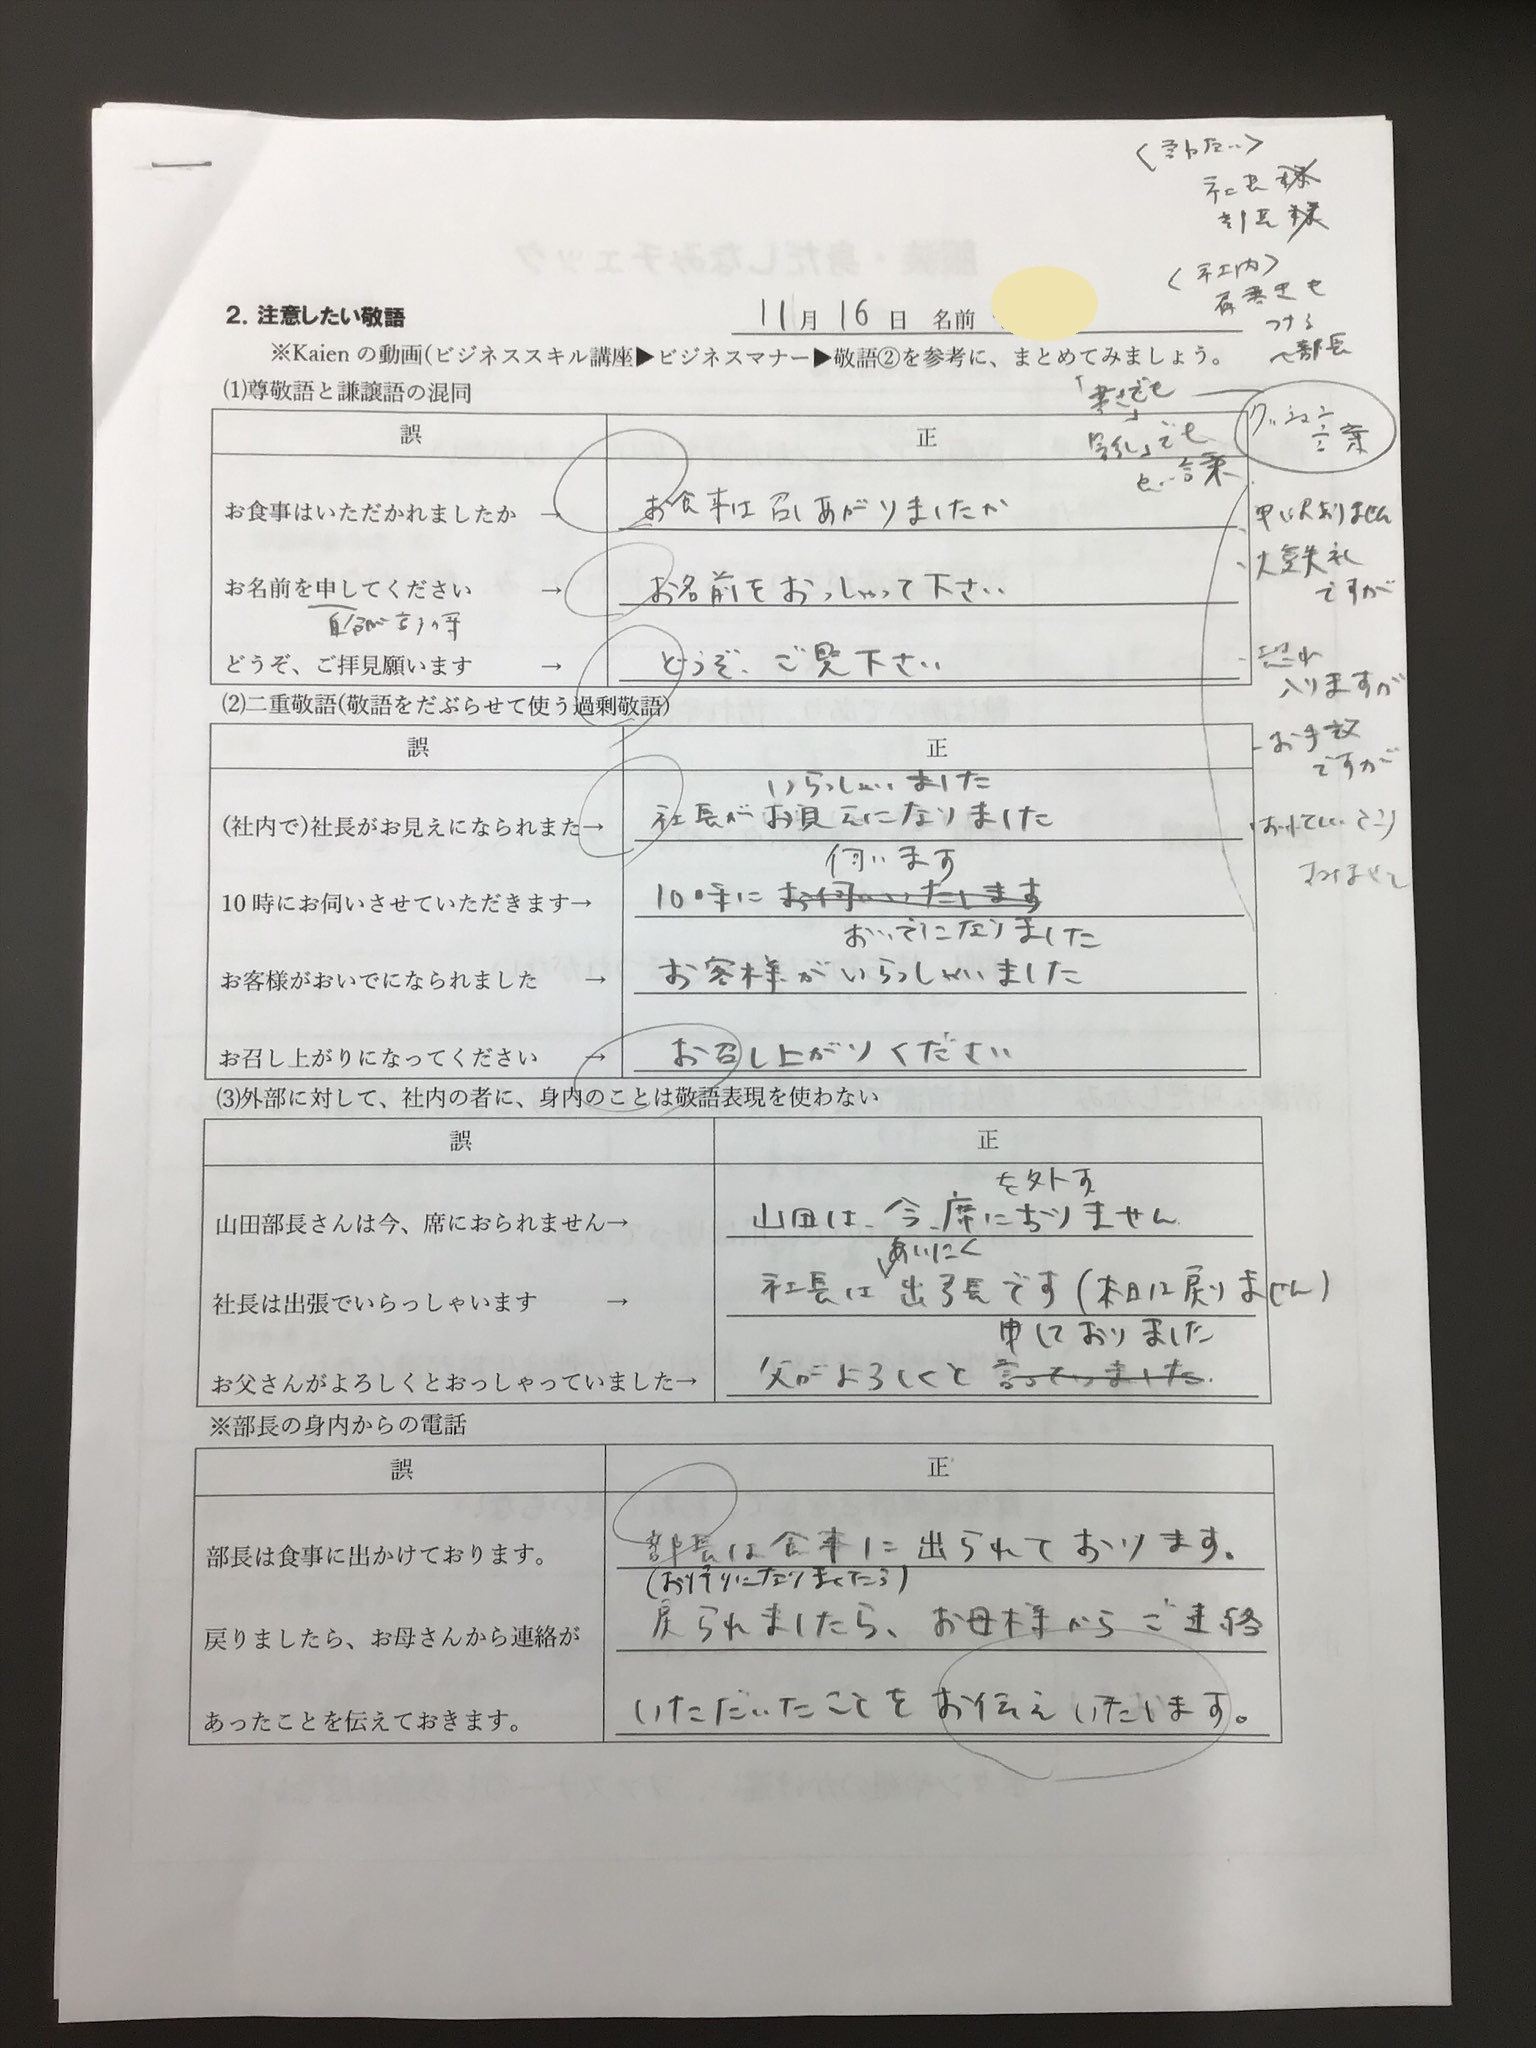 社長様
部長様
〈社内〉
つける
〜部長
2. 注意したい敬語
11月16日 名前
※Kaienの動画(ビジネススキル講座▶ビジネスマナー▶敬語②を参考に、まとめてみましょう。
(1)尊敬語と謙譲語の混同
クッション言葉
誤 正
お食事はいただかれましたか → お食事は召しあがりましたか
お名前を申してください → お名前をおっしゃって下さい
自分が言う時
どうぞ、ご拝見願います → どうぞ、ご覧下さい
申し訳ありません
大変失礼
ですが
恐れ
入りますが
お手数
ですが
(2)二重敬語(敬語をだぶらせて使う過剰敬語)
誤 正
いらっしゃいました
(社内で)社長がお見えになられまた→ 社長がお見えになりました
伺います
10時にお伺いさせていただきます→ 10時にお伺いいたします
おいでになりました
お客様がおいでになられました → お客様がいらっしゃいました
お召し上がりになってください → お召し上がりください
(3)外部に対して、社内の者に、身内のことは敬語表現を使わない
誤 正
を外す
山田部長さんは今、席におられません→ 山田は、今、席におりません
あいにく
社長は出張でいらっしゃいます → 社長は出張です(本日は戻りません)
申しておりました
お父さんがよろしくとおっしゃっていました→ 父がよろしくと言っていました.
※部長の身内からの電話
誤 正
部長は食事に出かけております。 部長は食事に出られております。
(お戻りになりましたら)
戻りましたら、お母さんから連絡が 戻られましたら、お母様からご連絡
あったことを伝えておきます。 いただいたことをお伝えいたします。